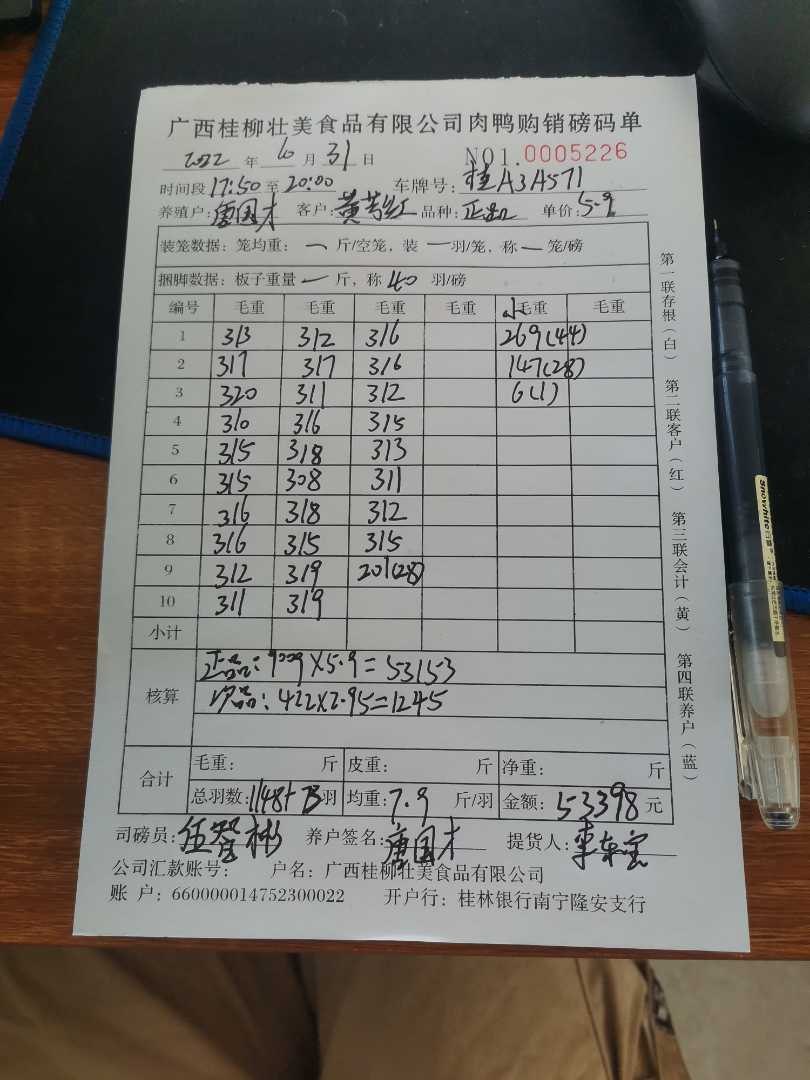 广西桂柳壮美食品有限公司肉鸭购销磅码单
2022 年 10 月 31 日 NO1.0005226
时间段 17:50 至 20:00 车牌号: 桂A3A571
养殖户: 唐国才 客户: 黄 红 品种: 正品 单价: 5.9
装笼数据: 笼均重: 一 斤/空笼, 装 一 羽/笼, 称 一 笼/磅
捆脚数据: 板子重量 一 斤, 称 40 羽/磅
编号 毛重 毛重 毛重 毛重 小毛重 毛重
1 313 312 316 269(44)
2 317 317 316 147(28)
3 320 311 312 6(1)
4 310 316 315
5 315 318 313
6 315 308 311
7 316 318 312
8 316 315 315
9 312 319 201(28)
10 311 319
小计
核算 正品: 9009×5.9=53153
次品: 422×2.95=1245
合计 毛重: 斤 皮重: 斤 净重: 斤
总羽数: 1148+73 羽 均重: 7.9 斤/羽 金额: 53398 元
司磅员: 伍 彬 养户签名: 唐国才 提货人:
公司汇款账号: 户名: 广西桂柳壮美食品有限公司
账 户: 660000014752300022 开户行: 桂林银行南宁隆安支行
第一联存根(白) 第二联客户(红) 第三联会计(黄) 第四联养户(蓝)
Snowhite